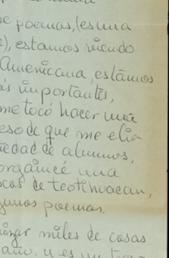 e poemas, (es una
), estamos viendo
Americana, estamos
ás importantes,
me tocó hacer una
eso de que me eli
iedad de alumnos,
organicé una
cas de teotihuacan,
gunos poemas.
miles de cosas
año, y es un